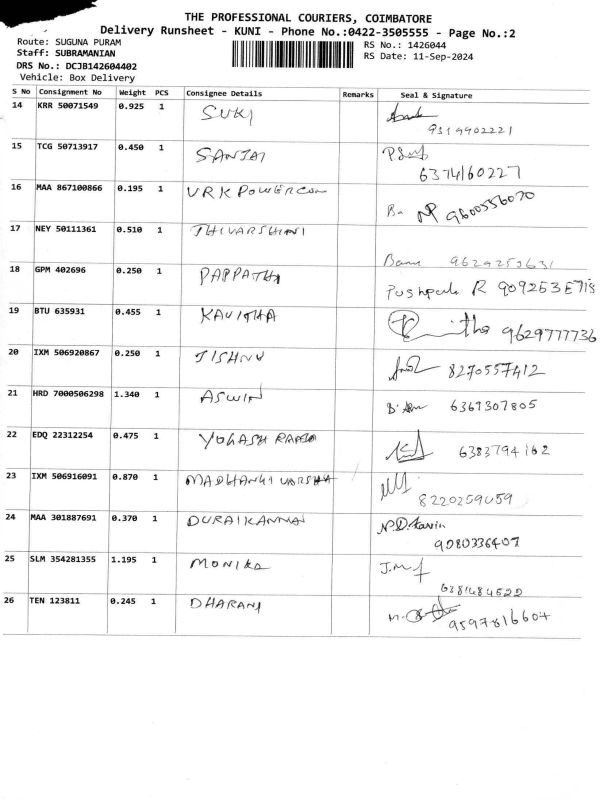 THE PROFESSIONAL COURIERS, COIMBATORE
Delivery Runsheet - KUNI - Phone No.:0422-3505555 - Page No.:2
Route: SUGUNA PURAM
RS No.: 1426044
Staff: SUBRAMANIAN
RS Date: 11-Sep-2024
DRS No.: DCJB142604402
Vehicle: Box Delivery
S No Consignment No Weight PCS Consignee Details Remarks Seal & Signature
14 KRR 50071549 0.925 1 SUKI
9319902221
15 TCG 50713917 0.450 1 SANJAI
6374160227
16 MAA 867100866 0.195 1 VRK POWERCON
9600556070
17 NEY 50111361 0.510 1 THIVARSHINI
Banu 9629253631
18 GPM 402696 0.250 1 PAPPATHI
Pushpala R
19 BTU 635931 0.455 1 KAVITHA
9629777736
20 IXM 506920867 0.250 1 JISHNU
8270557412
21 HRD 7000506298 1.340 1 ASWIN
6369307805
22 EDQ 22312254 0.475 1 YOGASH
6383794162
23 IXM 506916091 0.870 1 MADHANGI VARSHA
8220259059
24 MAA 301887691 0.370 1 DURAIKANNAN
N.D. Kavin
9080336407
25 SLM 354281355 1.195 1 MONIKA
J.M
6381484522
26 TEN 123811 0.245 1 DHARANI
9597816604